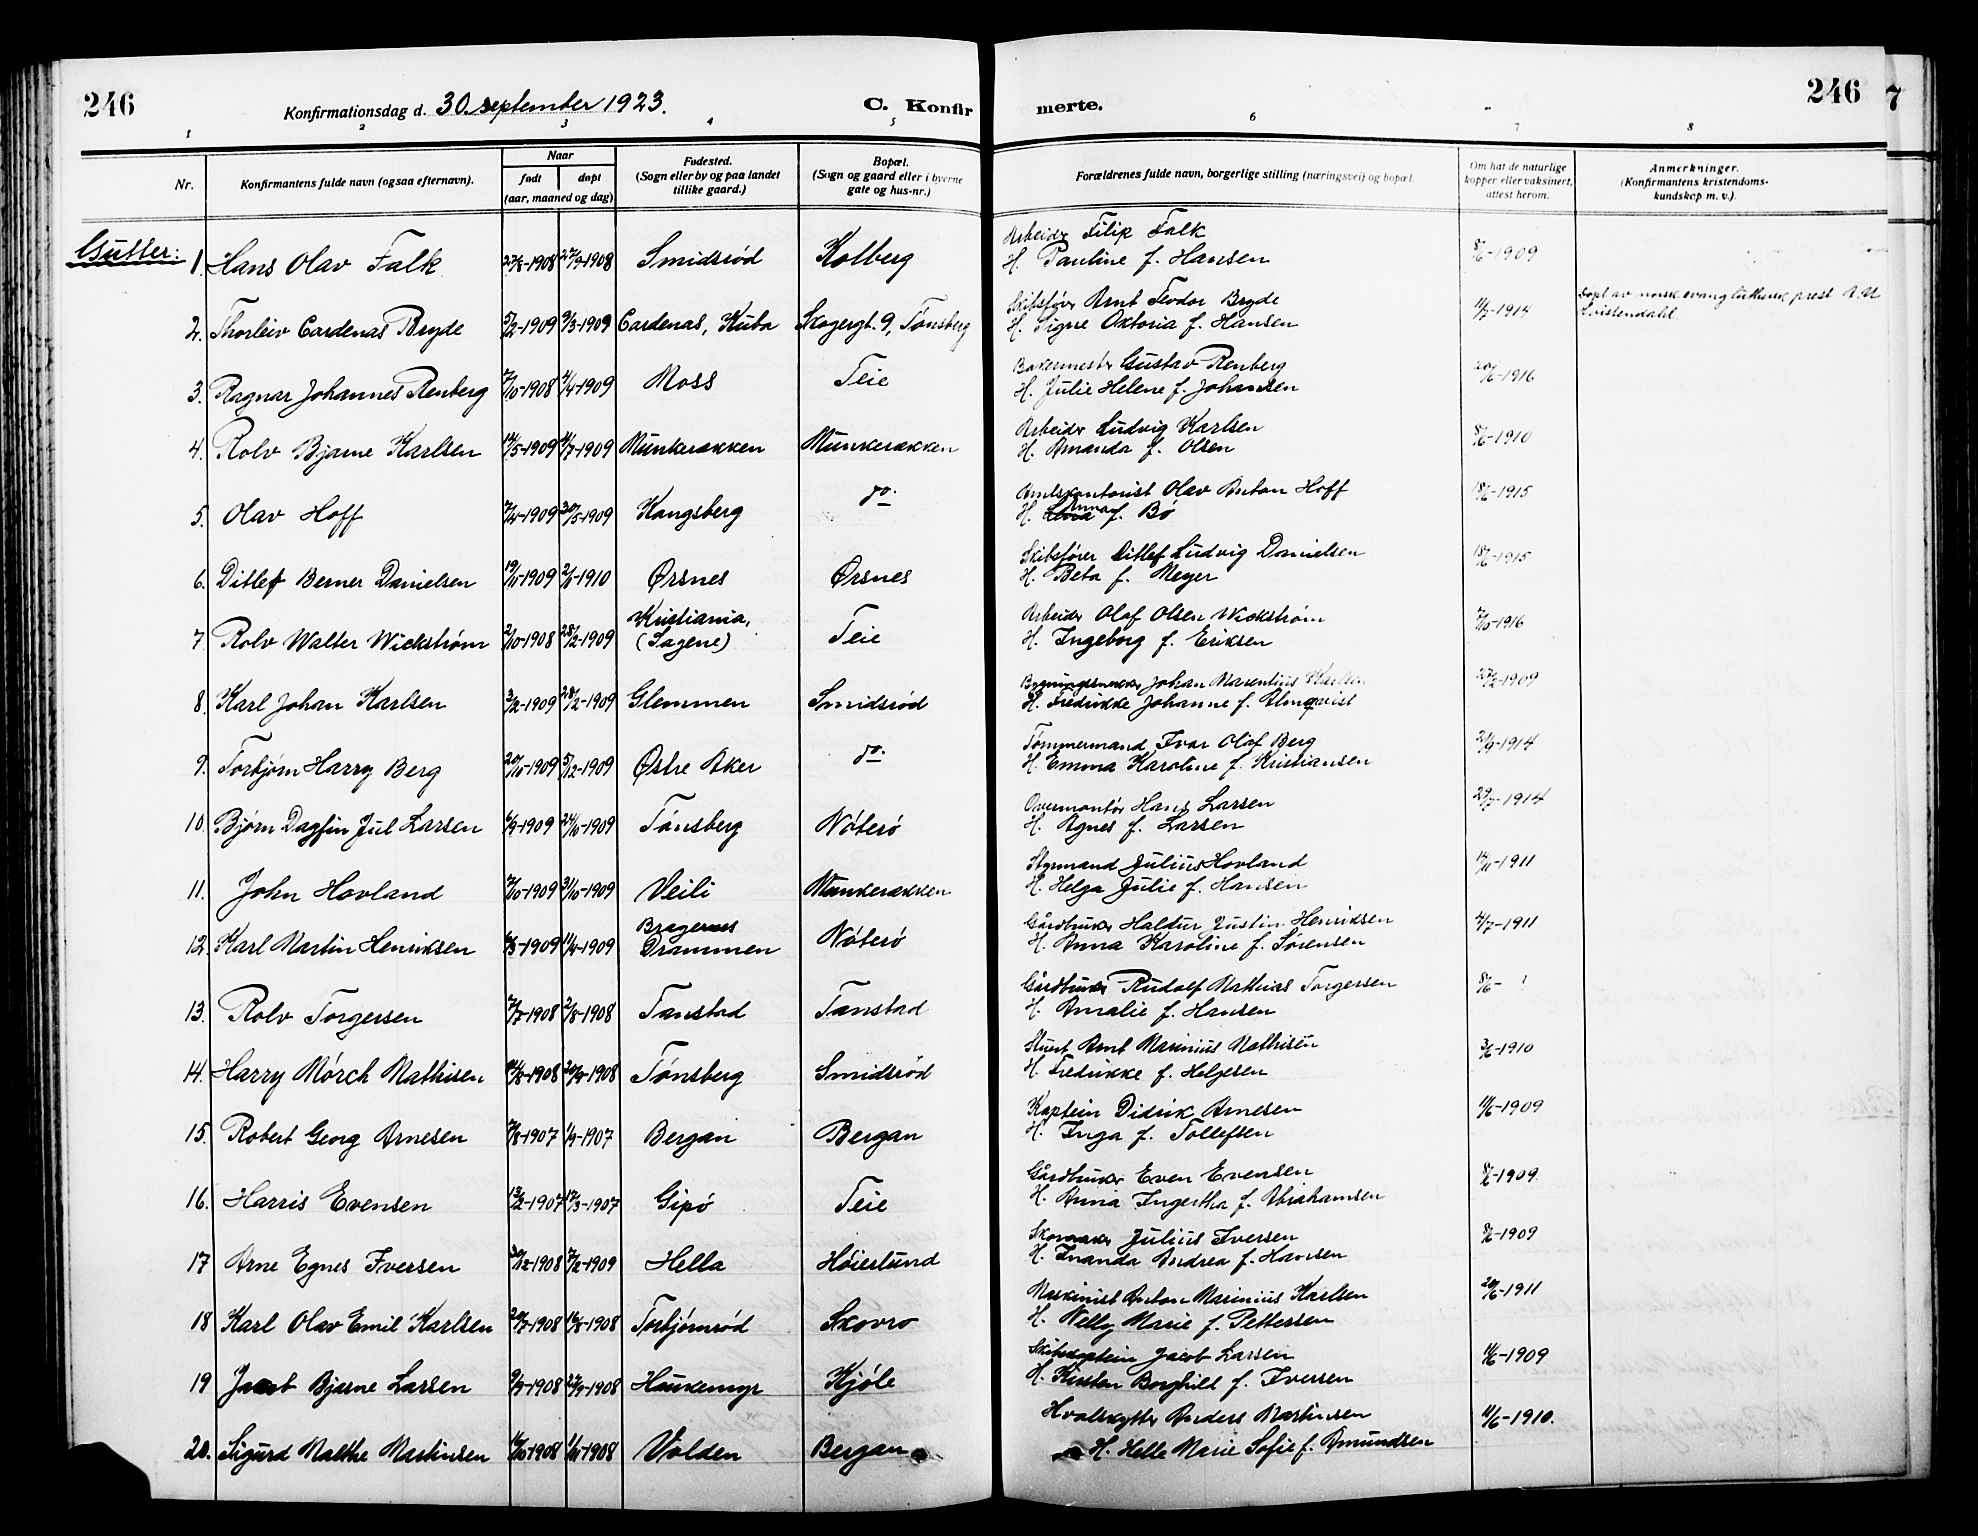 246
Konfirmationsdag d. 30. september 1923.
C. Konfir
merte.
246
7
1 2 3 4 5 6 7 8
Nr.
Konfirmantens fulde navn (ogsaa efternavn).
Naar
født
døpt
(aar, maaned og dag)
Fødested.
(Sogn eller by og paa landet
tillike gaard.)
Bopæl.
(Sogn og gaard eller i byerne
gate og hus-nr.)
Forældrenes fulde navn, borgerlige stilling (næringsvei) og bopæl.
Om hat de naturlige
kopper eller vaksinert,
attest herom.
Anmerkninger.
(Konfirmantens kristendoms-
kundskap m. v.).
Gutter:
Arbeider Filip Falk
1. Hans Olav Falk 27/8-1908 27/9-1908 Smidsrød Kolberg H. Pauline f. Hansen 8/6-1909
Skibsfører Arnt Teodor Bryde
2. Thorleiv Cardenas Bryde 5/2-1909 9/3-1909 Cardenas, Kuba Skogergt. 9, Tønsberg H. Signe Oktoria f. Hansen 11/7-1914 Døpt av norsk evang luthersk prest
Bakermester Gustav Renberg
3. Ragnar Johannes Renberg 7/10-1908 4/4-1909 Moss Teie H. Julie Helene f. Johansen 20/6-1916
Arbeider Ludvig Karlsen
4. Rolv Bjarne Karlsen 14/5-1909 4/7-1909 Munkerækken Munkerækken H. Amanda f. Olsen 8/6-1910
Amtskontorist Olav Anton Hoff
5. Olav Hoff 7/4-1909 30/5-1909 Kongsberg do. H. Anna f. Bø 18/6-1915
Skibsfører Ditlef Ludvig Danielsen
6. Ditlef Berner Danielsen 19/11-1909 2/1-1910 Ørsnes Ørsnes H. Beta f. Meyer 18/6-1915
Arbeider Olaf Olsen Wickstrøm
7. Rolv Walter Wickstrøm 2/10-1908 28/2-1909 Kristiania, (Sagene) Teie H. Ingeborg f. Eriksen 7/10-1916
Johan Marentius Karlsen
8. Karl Johan Karlsen 3/2-1909 28/2-1909 Glemmen Smidsrød H. Fredrikke Johanne f. Almqvist 27/2-1909
Tømmermand Ivar Olaf Berg
9. Torbjørn Harry Berg 20/10-1909 5/12-1909 Østre Aker do. H. Emma Karoline f. Kristiansen 21/9-1914
Overmontør Hans Larsen
10. Bjørn Dagfin Jul Larsen 6/9-1909 24/10-1909 Tønsberg Nøterø H. Agnes f. Larsen 29/7-1914
Styrmand Julius Hovland
11. John Hovland 7/10-1909 31/10-1909 Veili Munkerækken H. Helga Julie f. Hansen 14/11-1911
Gårdbruker Haldur Justin Henriksen
12. Karl Martin Henriksen 6/3-1909 11/4-1909 Bragernes Drammen Nøterø H. Anna Karoline f. Sørensen 4/7-1911
Gårdbruker Rudolf Mathias Torgersen
13. Rolv Torgersen 7/7-1908 2/8-1908 Tanstad Tanstad H. Amalie f. Hansen 8/6-
Stuert Arnt Marinius Mathisen
14. Harry Mørch Mathisen Tønsberg Smidsrød H. Fredrikke f. Helgesen 3/6-1910
Kaptein Didrik Arnesen
15. Robert Georg Arnesen 7/8-1907 1/9-1907 Bergan Bergan H. Inga f. Tollefsen 11/6-1909
Gårdbruker Even Evensen
16. Harris Evensen 13/2-1907 17/3-1907 Gipø Teie H. Anna Ingertha f. Abrahamsen 8/6-1909
Skomaker Julius Iversen
17 Arne Egnes Iversen 30/12-1908 7/2-1909 Hella Høierlund H. Inanda Andrea f. Hansen 8/6-1909
Maskinist Anton Marinius Karlsen
18 Karl Olav Emil Karlsen 20/7-1908 16/8-1908 Torbjørnrød Skovro H. Nelly Marie f. Pettersen 20/6-1911
Skibskaptein Jacob Larsen
19 Jacob Bjarne Larsen 9/9-1908 27/9-1908 Haukemyr Kjøle H. Kirsten Borghild f. Iversen 11/6-1909
Hvalskytter Anders Martinsen
20. Sigurd Malthe Martinsen 16/10-1908 1/11-1908 Volden Bergan H. Helle Marie Sofie f. Amundsen 11/6-1910.